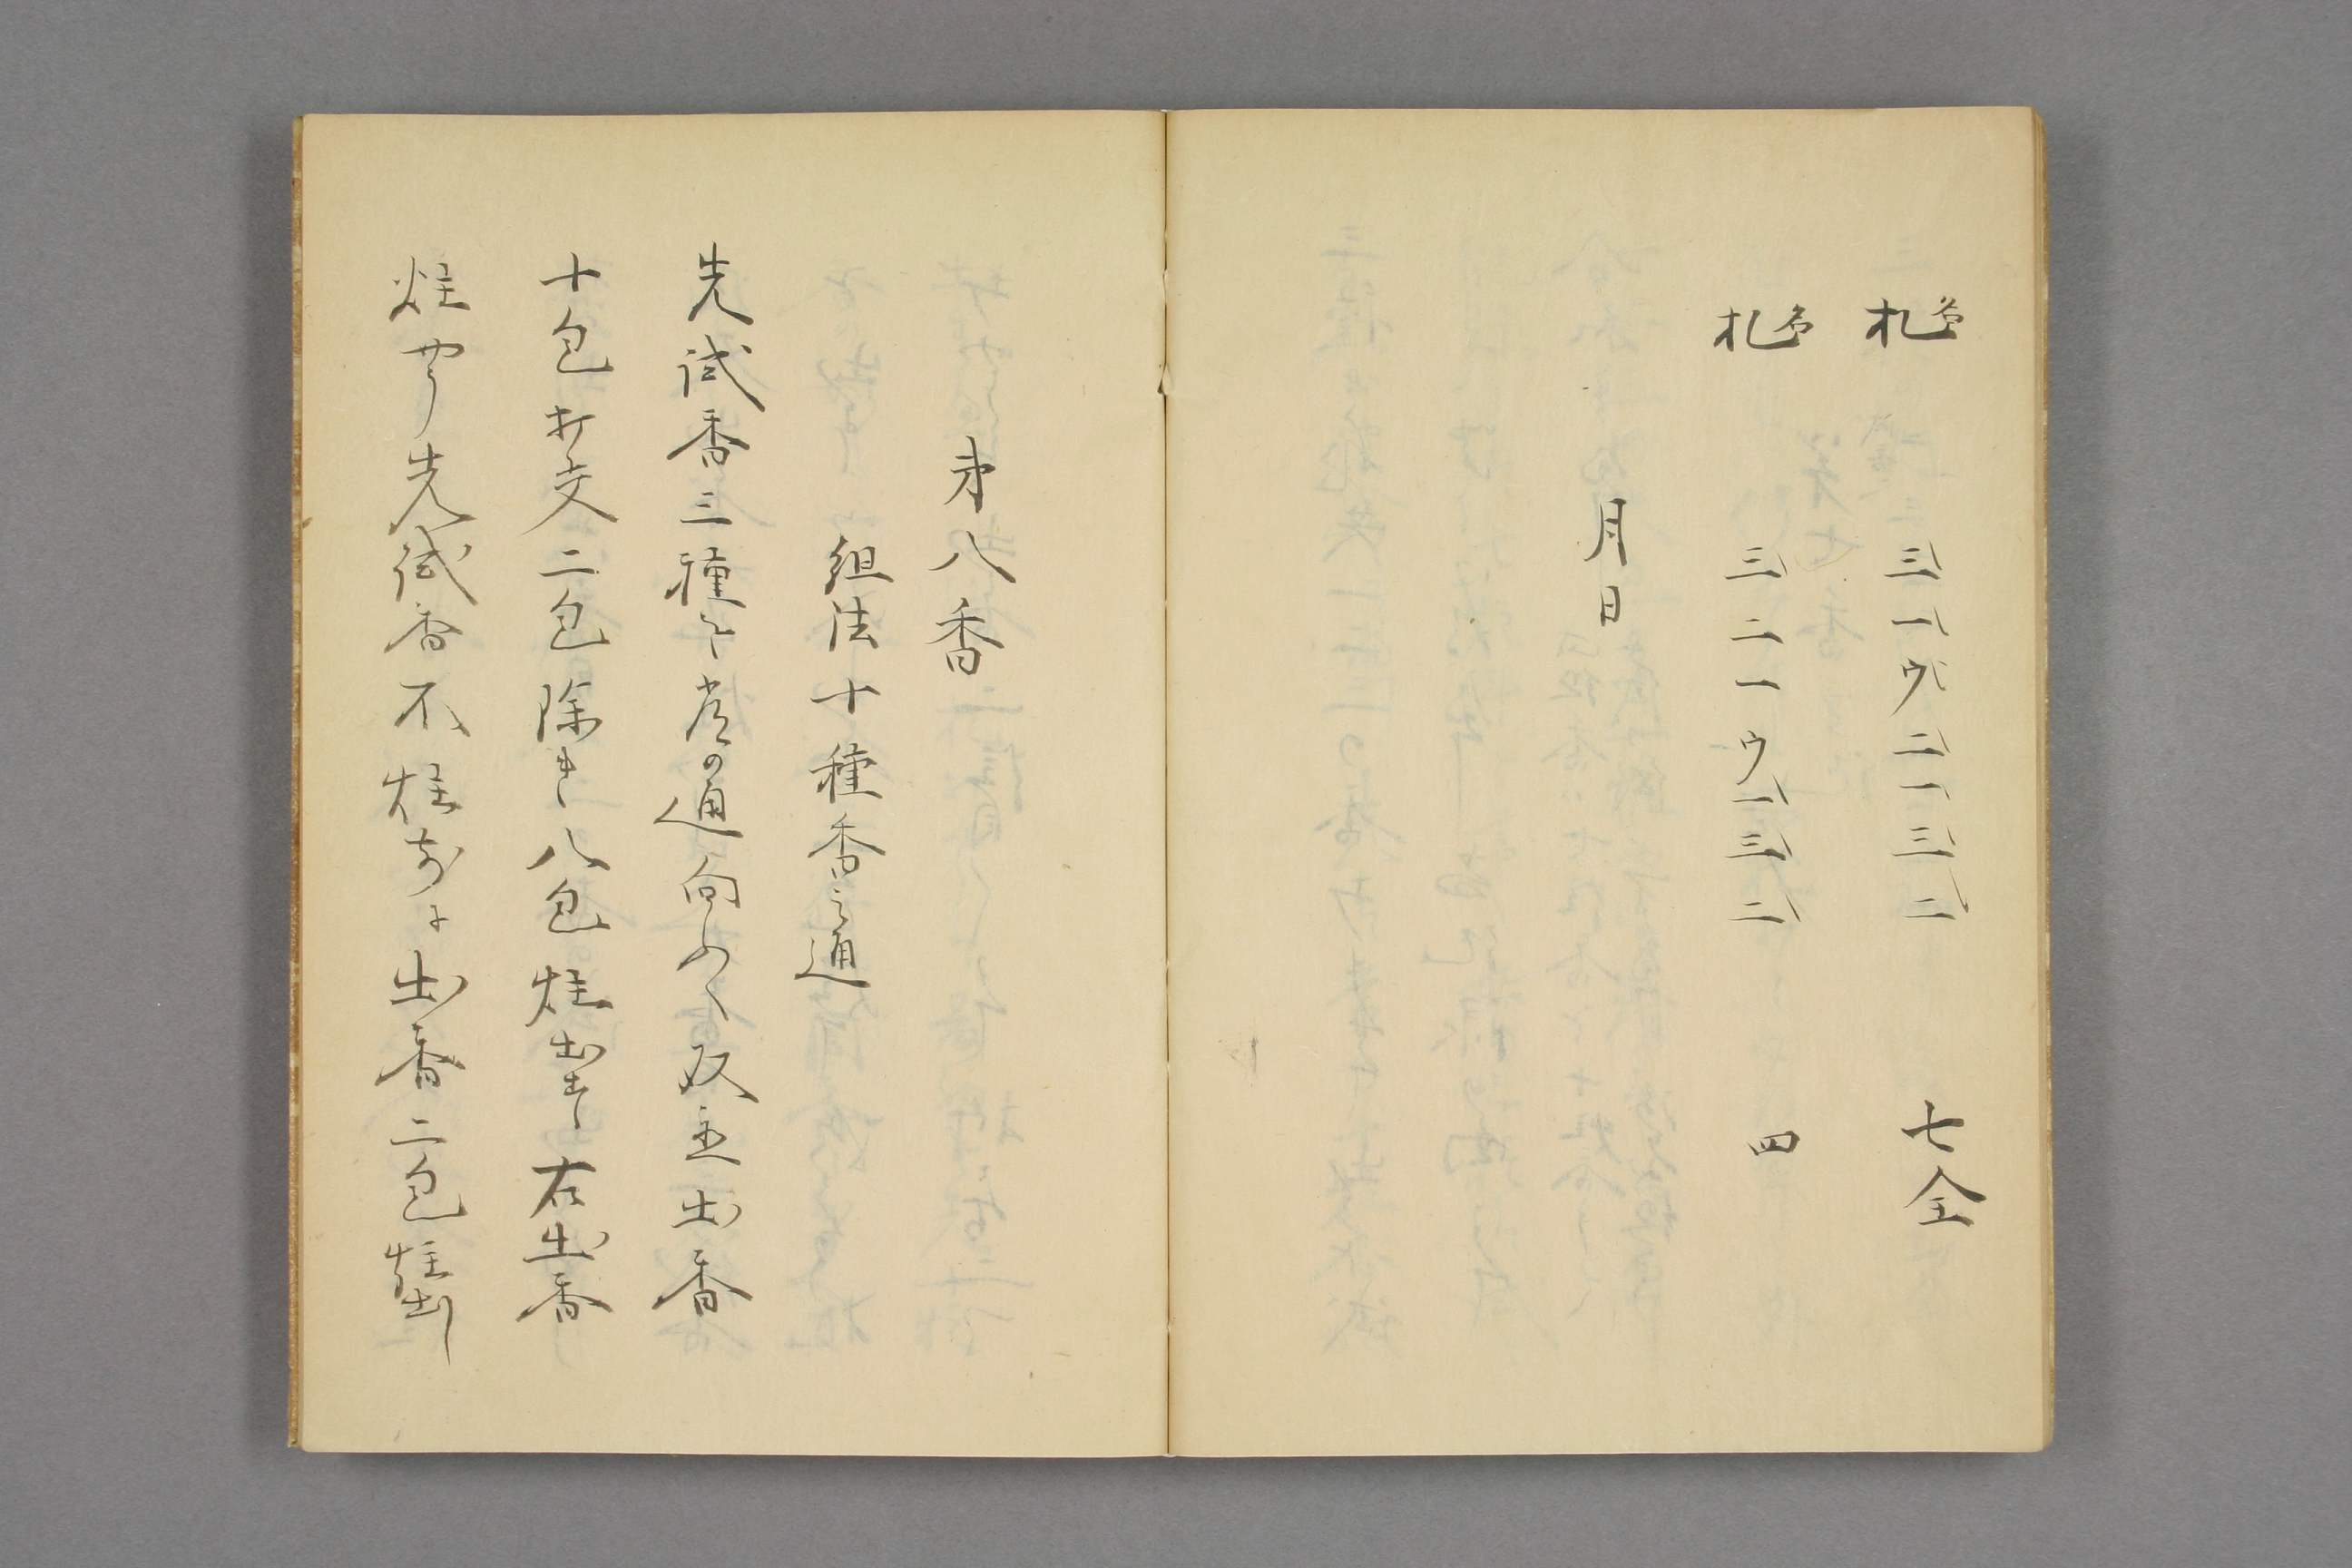 札名 三一ウ二一三二 七全
札名 三二一ウ一三二 四
月日
第八香
組法十種香之通
先試香三種を常の通向めく取立出香
十包打交二包除き八包炷出す右出香
炷やう先試香不炷前に出香二包炷出し